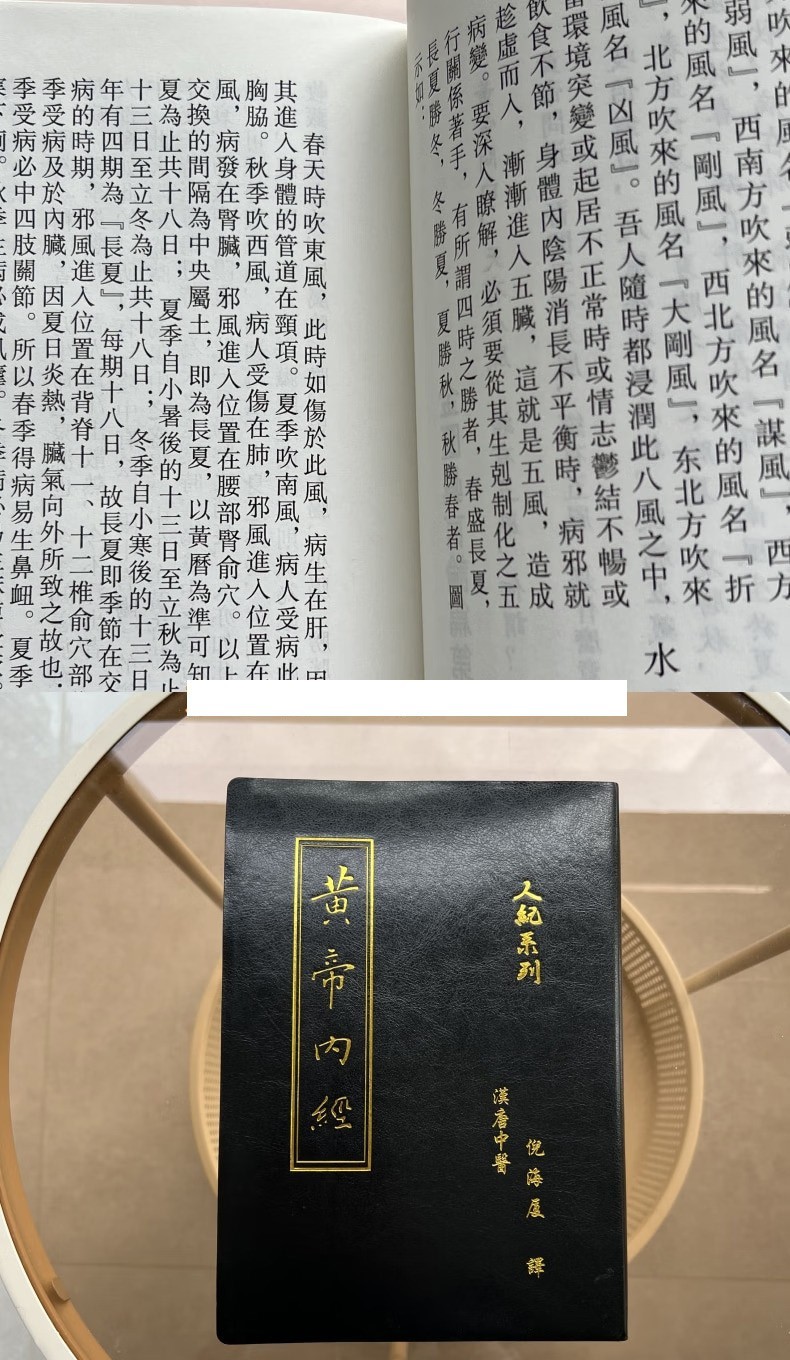 吹來的風名
弱風』，西南方吹來的風名『謀風』，西方
來的風名『剛風』，西北方吹來的風名『折
』，北方吹來的風名『大剛風』，东北方吹來
風名『凶風』。吾人隨時都浸潤此八風之中，
當環境突變或起居不正常時或情志鬱結不暢或
飲食不節，身體內陰陽消長不平衡時，病邪就
趁虛而入，漸漸進入五臟，這就是五風，造成
病變。要深入瞭解，必須要從其生剋制化之五
行關係著手，有所謂四時之勝者，春盛長夏，
長夏勝冬，冬勝夏，夏勝秋，秋勝春者。圖
示如：
水
春天時吹東風，此時如傷於此風，病生在肝，因
其進入身體的管道在頸項。夏季吹南風，病人受病此
胸脇。秋季吹西風，病人受傷在肺，邪風進入位置在
風，病發在腎臟，邪風進入位置在腰部腎俞穴。以上
交換的間隔為中央屬土，即為長夏，以黃曆為準可知
夏為止共十八日；夏季自小暑後的十三日至立秋為止
十三日至立冬為止共十八日；冬季自小寒後的十三日
年有四期為『長夏』，每期十八日，故長夏即季節在交
病的時期，邪風進入位置在背脊十一、十二椎俞穴部
季受病及於內臟，因夏日炎熱，臟氣向外所致之故也
季受病必中四肢關節。所以春季得病易生鼻衄。夏季
人紀系列
倪海厦 譯
漢唐中醫
黃帝內經